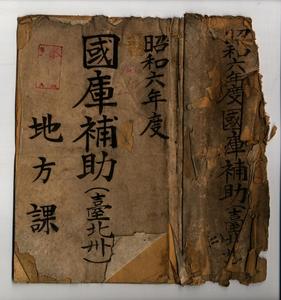 昭和六年度國庫補助(臺北州)
昭和六年度
國庫補助(臺北州)
地方課